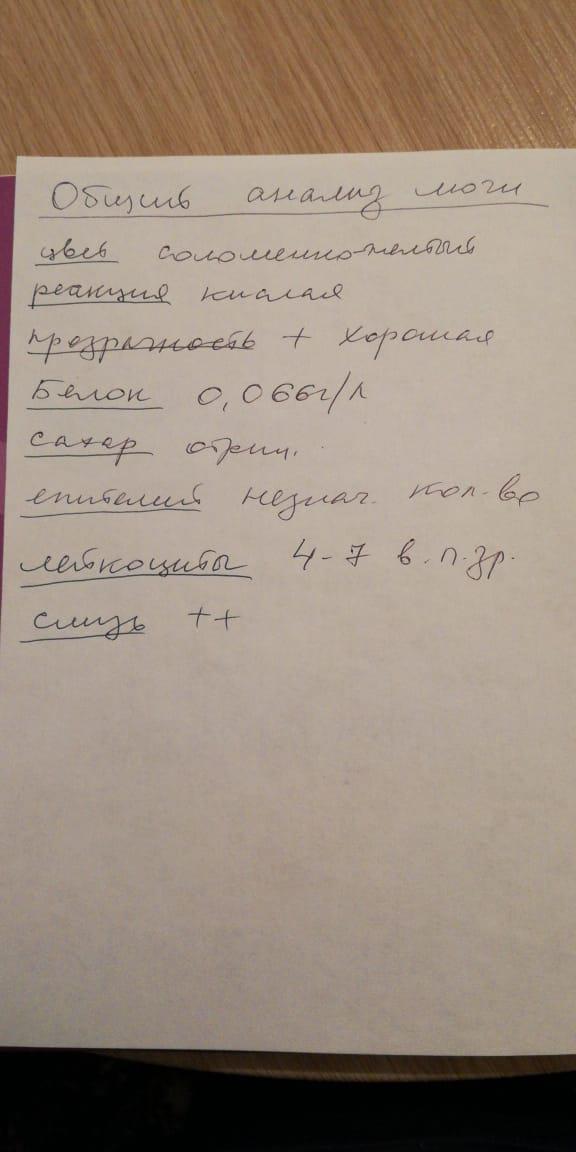 Общий анализ мочи
цвет соломенно-желтый
реакция кислая
прозрачность + хорошая
Белок 0,066г/л
сахар отриц.
епителий незнач. кол-во
лейкоциты 4-7 в.п.зр.
слизь ++